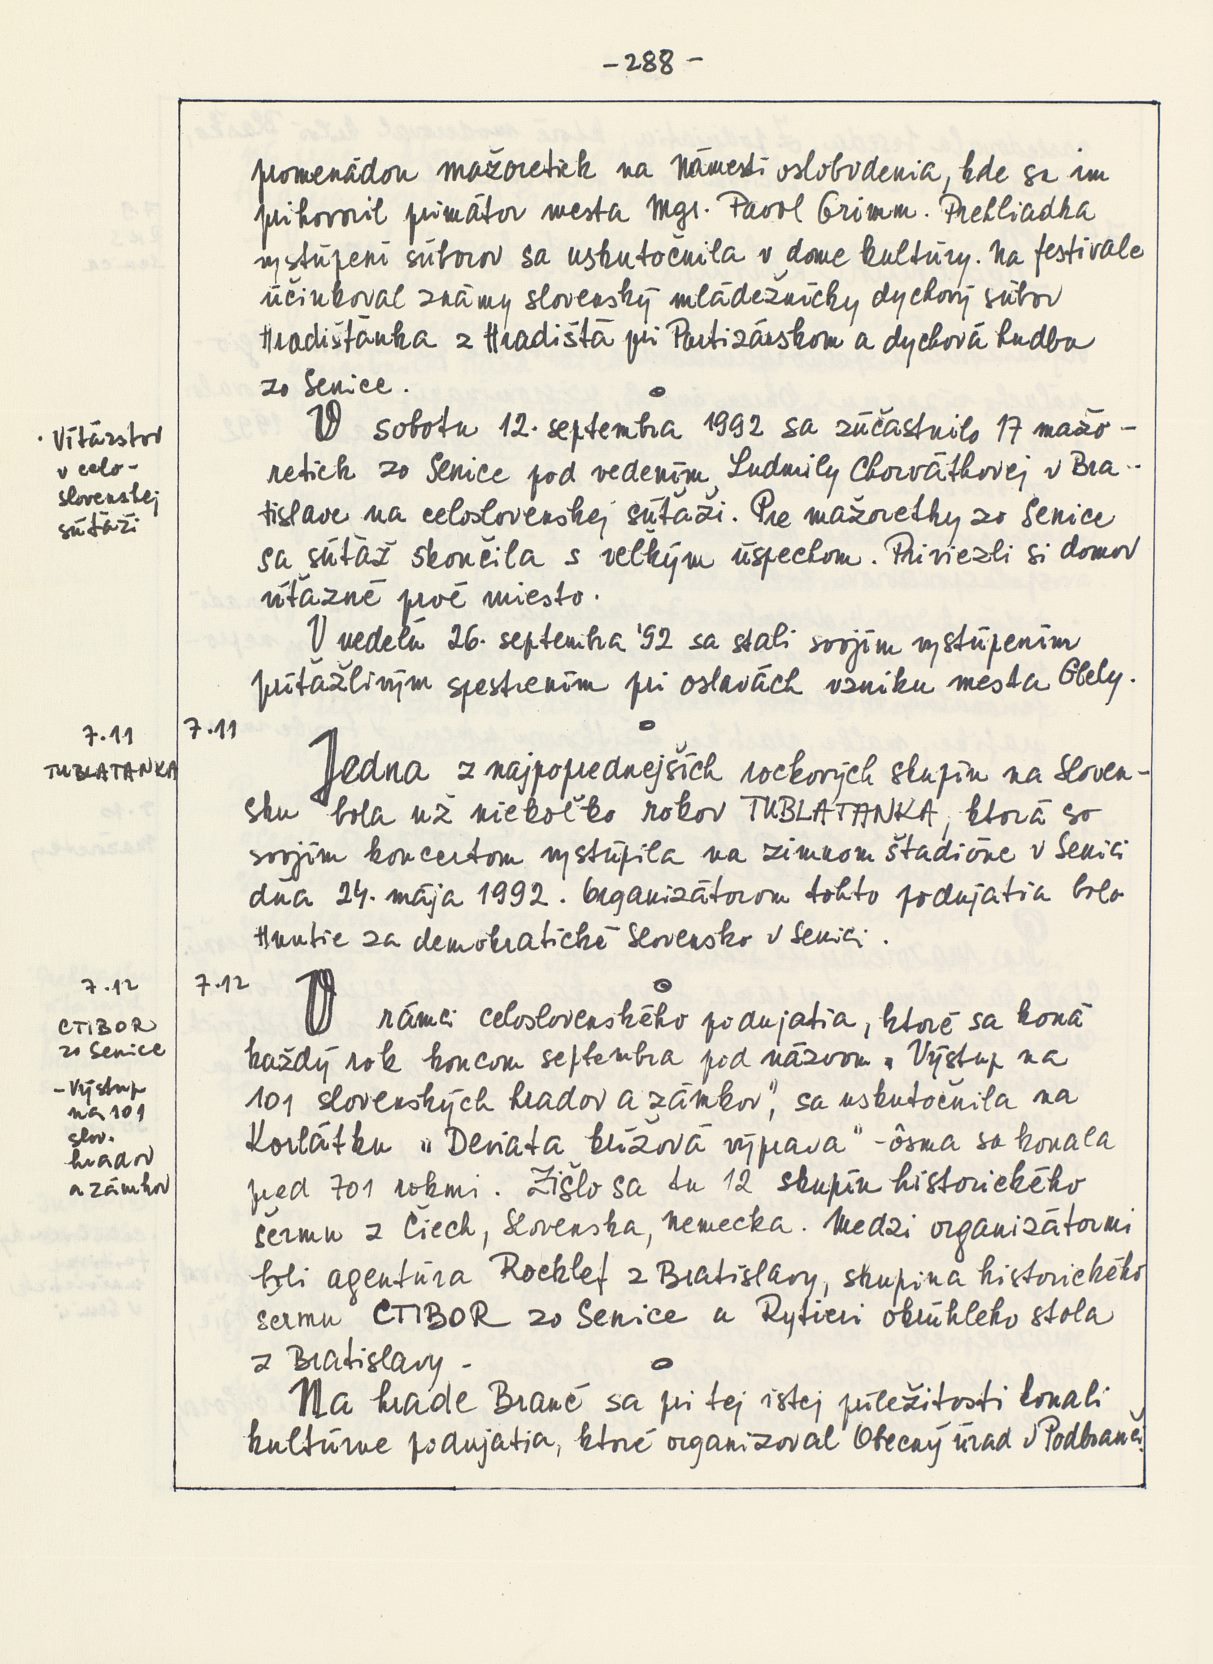 - 288 -
promenádou mažoretiek na Námestí oslobodenia, kde sa im
prihovoril primátor mesta Mgr. Pavol Grimm. Prehliadka
vystúpení súborov sa uskutočnila v dome kultúry. Na festivale
účinkoval známy slovenský mládežnícky dychový súbor
Hradišťanka z Hradišťa pri Partizánskom a dychová hudba
zo Senice.
· Víťazstvo
v celo-
slovenskej
súťaži
V sobotu 12. septembra 1992 sa zúčastnilo 17 mažo-
retiek zo Senice pod vedením Ludmily Chorváthovej v Bra-
tislave na celoslovenskej súťaži. Pre mažoretky zo Senice
sa súťaž skončila s veľkým úspechom. Priviezli si domov
víťazné prvé miesto.
V nedeľu 26. septembra '92 sa stali svojím vystúpením
príťažlivým spestrením pri oslavách vzniku mesta Gbely.
7.11
TUBLATANKA
7.11
Jedna z najpoprednejších rockových skupín na Sloven-
sku bola už niekoľko rokov TUBLATANKA, ktorá so
svojím koncertom vystúpila na zimnom štadióne v Senici
dňa 24. mája 1992. Organizátorom tohto podujatia bolo
Hnutie za demokratické Slovensko v Senici.
7.12
CTIBOR
zo Senice
- Výstup
na 101
slov.
hradov
a zámkov
7.12
V rámci celoslovenského podujatia, ktoré sa koná
každý rok koncom septembra pod názvom „Výstup na
101 slovenských hradov a zámkov", sa uskutočnila na
Korlátku „Deviata krížová výprava" - ôsma sa konala
pred 701 rokmi. Zišlo sa tu 12 skupín historického
šermu z Čiech, Slovenska, Nemecka. Medzi organizátormi
boli agentúra Rocklef z Bratislavy, skupina historického
šermu CTIBOR zo Senice a Rytieri okrúhleho stola
z Bratislavy -
Na hrade Branč sa pri tej istej príležitosti konali
kultúrne podujatia, ktoré organizoval Obecný úrad v Podbranči.